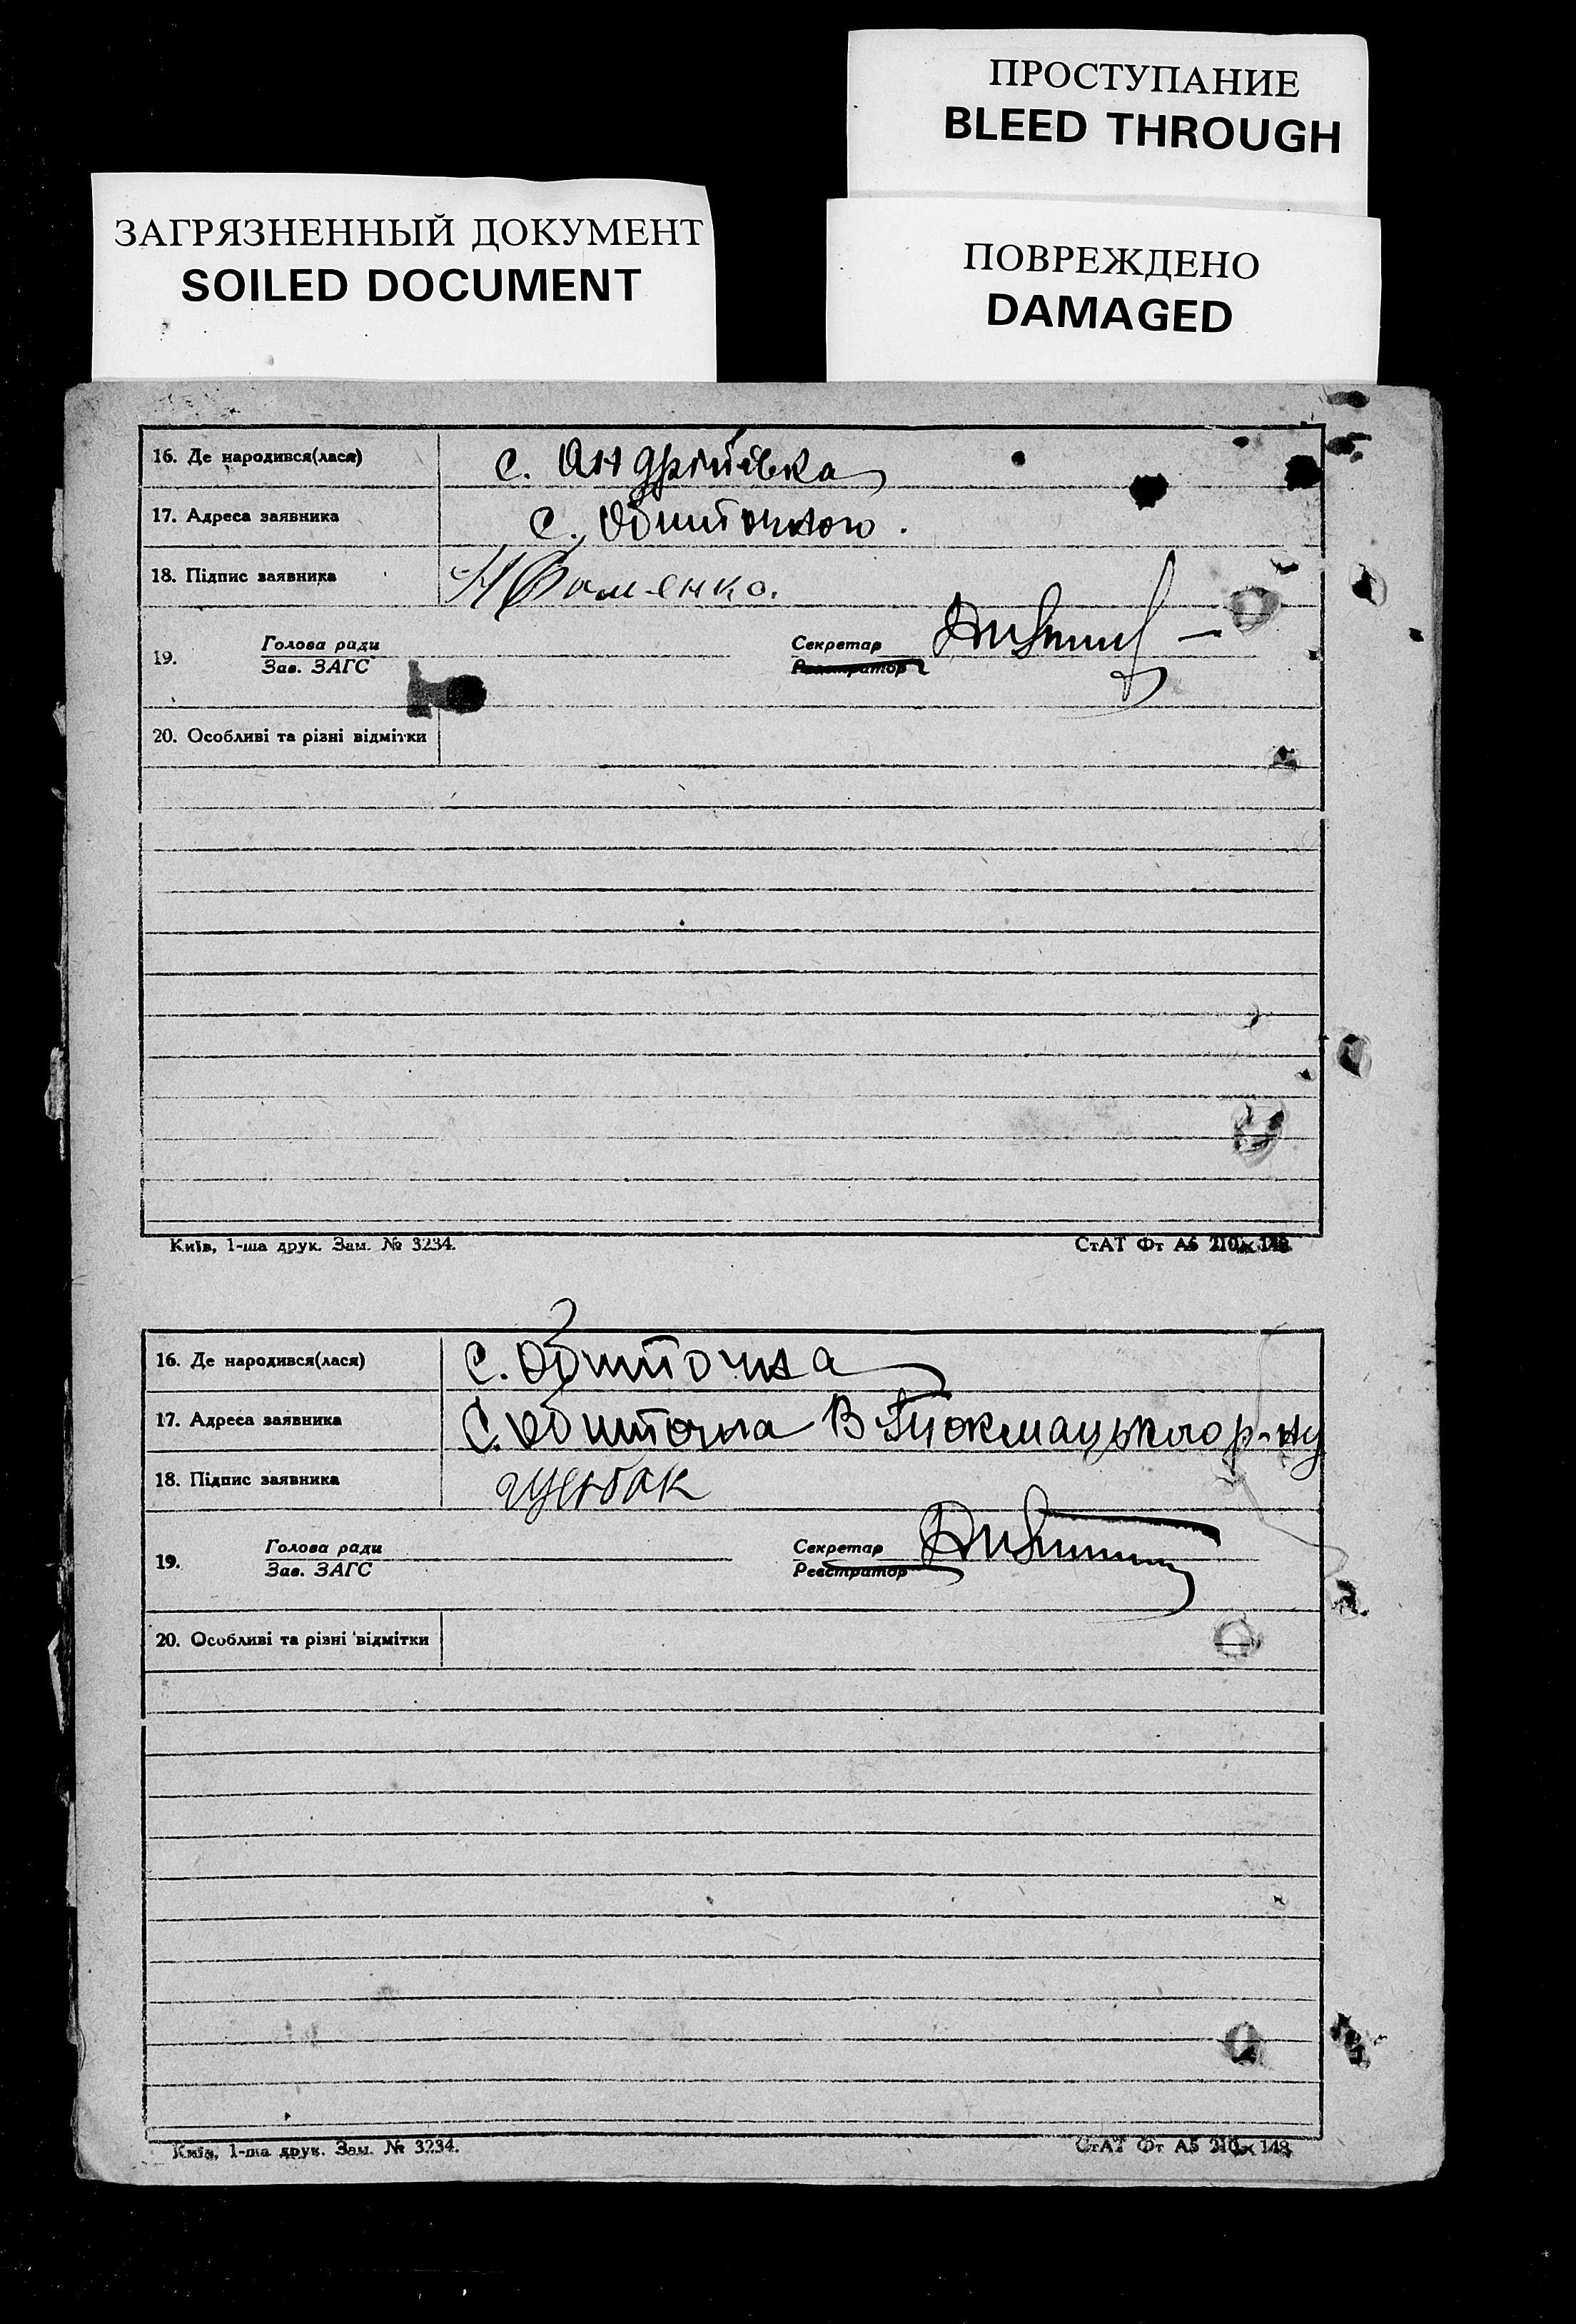 ПРОСТУПАНИЕ
BLEED THROUGH
ЗАГРЯЗНЕННЫЙ ДОКУМЕНТ
SOILED DOCUMENT
ПОВРЕЖДЕНО
DAMAGED
16. Де народився(лася) с. Андріївка
17. Адреса заявника с.
18. Підпис заявника Фоменко.
19. Голова ради Секретар
Зав. ЗАГС Реєстратор
20. Особливі та різні відмітки
Київ, 1-ша друк. Зам. № 3234. СтАТ Фт А5 210х148
16. Де народився(лася) с. Обиточна
17. Адреса заявника с. Обиточна В Токмацького р-ну
18. Підпис заявника
19. Голова ради Секретар
Зав. ЗАГС Реєстратор
20. Особливі та різні відмітки
Київ, 1-ша друк. Зам. № 3234. СтАТ Фт А5 210х148